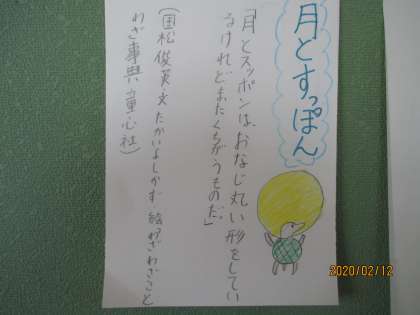 月とすっぽん
「月とスッポンは、おなじ丸い形をしてい
るけれどまったくちがうものだ。」
(国松俊英・文 たかいよしかず 絵 わざわざことわざ
事典 童心社)
2020/02/12